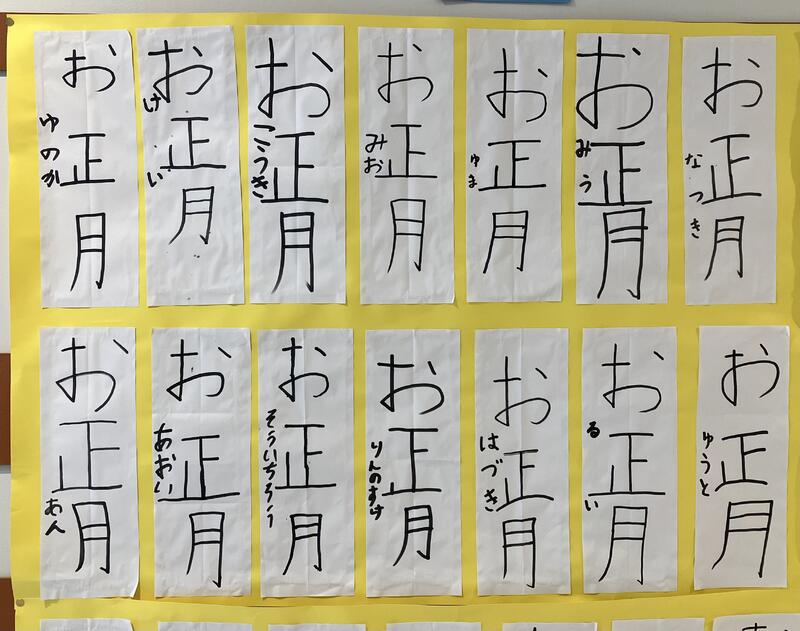 お正月
ゆのか
お正月
けい
お正月
こうき
お正月
みお
お正月
ゆま
お正月
みう
お正月
なつき
お正月
あん
お正月
あおい
お正月
そういちろう
お正月
りんのすけ
お正月
はづき
お正月
るい
お正月
ゆうと